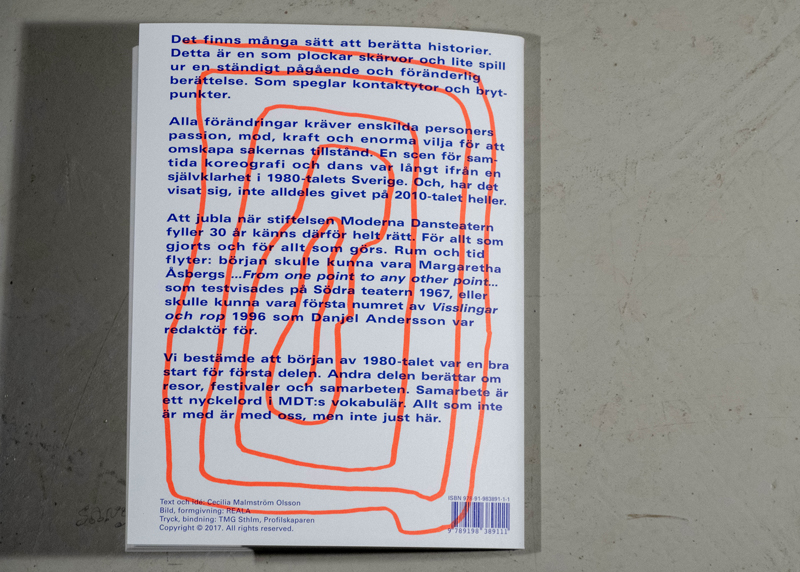 Det finns många sätt att berätta historier.
Detta är en som plockar skärvor och lite spill
ur en ständigt pågående och föränderlig
berättelse. Som speglar kontaktytor och bryt-
punkter.
Alla förändringar kräver enskilda personers
passion, mod, kraft och enorma vilja för att
omskapa sakernas tillstånd. En scen för sam-
tida koreografi och dans var långt ifrån en
självklarhet i 1980-talets Sverige. Och, har det
visat sig, inte alldeles givet på 2010-talet heller.
Att jubla när stiftelsen Moderna Dansteatern
fyller 30 år känns därför helt rätt. För allt som
gjorts och för allt som görs. Rum och tid
flyter: början skulle kunna vara Margaretha
Åsbergs ...From one point to any other point...
som testvisades på Södra teatern 1967, eller
skulle kunna vara första numret av Visslingar
och rop 1996 som Danjel Andersson var
redaktör för.
Vi bestämde att början av 1980-talet var en bra
start för första delen. Andra delen berättar om
resor, festivaler och samarbeten. Samarbete är
ett nyckelord i MDT:s vokabulär. Allt som inte
är med är med oss, men inte just här.
Text och idé: Cecilia Malmström Olsson
Bild, formgivning: REALA
Tryck, bindning: TMG Sthlm, Profilskaparen
Copyright © 2017. All rights reserved.
ISBN 978-91-983891-1-1
9 789198 389111